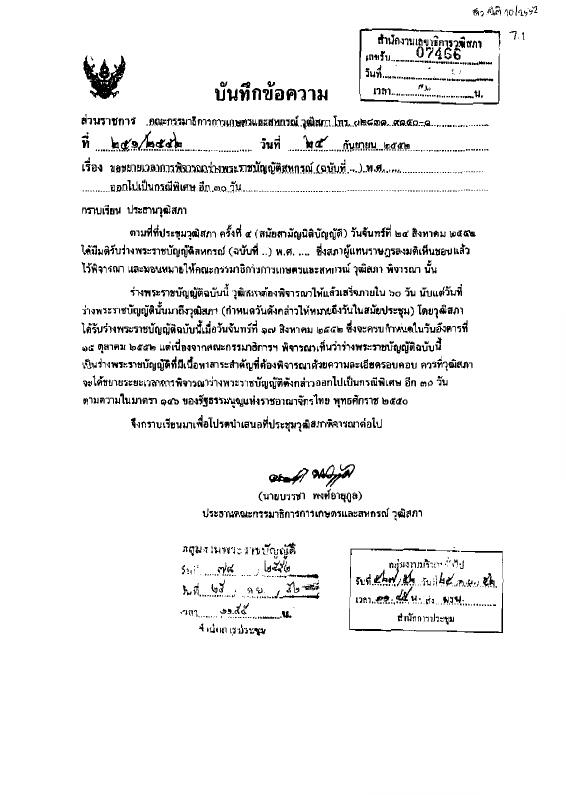 7.1
สำนักงานเลขาธิการวุฒิสภา
เลขรับ 07466
วันที่
เวลา น.
บันทึกข้อความ
ส่วนราชการ คณะกรรมาธิการการเกษตรและสหกรณ์ วุฒิสภา โทร. ๐๒๘๓๑ ๙๑๕๐-๑
ที่ ๒๕๑/๒๕๕๒ วันที่ ๒๕ กันยายน ๒๕๕๒
เรื่อง ขอขยายเวลาการพิจารณาร่างพระราชบัญญัติสหกรณ์ (ฉบับที่ ..) พ.ศ. ....
ออกไปเป็นกรณีพิเศษ อีก ๓๐ วัน
กราบเรียน ประธานวุฒิสภา
ตามที่ที่ประชุมวุฒิสภา ครั้งที่ ๕ (สมัยสามัญนิติบัญญัติ) วันจันทร์ที่ ๒๔ สิงหาคม ๒๕๕๒
ได้มีมติรับร่างพระราชบัญญัติสหกรณ์ (ฉบับที่ ..) พ.ศ. .... ซึ่งสภาผู้แทนราษฎรลงมติเห็นชอบแล้ว
ไว้พิจารณา และมอบหมายให้คณะกรรมาธิการการเกษตรและสหกรณ์ วุฒิสภา พิจารณา นั้น
ร่างพระราชบัญญัติฉบับนี้ วุฒิสภาต้องพิจารณาให้แล้วเสร็จภายใน ๖๐ วัน นับแต่วันที่
ร่างพระราชบัญญัตินั้นมาถึงวุฒิสภา (กำหนดวันดังกล่าวให้หมายถึงวันในสมัยประชุม) โดยวุฒิสภา
ได้รับร่างพระราชบัญญัติฉบับนี้เมื่อวันจันทร์ที่ ๑๗ สิงหาคม ๒๕๕๒ ซึ่งจะครบกำหนดในวันอังคารที่
๑๕ ตุลาคม ๒๕๕๒ แต่เนื่องจากคณะกรรมาธิการฯ พิจารณาเห็นว่าร่างพระราชบัญญัติฉบับนี้
เป็นร่างพระราชบัญญัติที่มีเนื้อหาสาระสำคัญที่ต้องพิจารณาด้วยความละเอียดรอบคอบ ควรที่วุฒิสภา
จะได้ขยายระยะเวลาการพิจารณาร่างพระราชบัญญัติดังกล่าวออกไปเป็นกรณีพิเศษ อีก ๓๐ วัน
ตามความในมาตรา ๑๔๖ ของรัฐธรรมนูญแห่งราชอาณาจักรไทย พุทธศักราช ๒๕๕๐
จึงกราบเรียนมาเพื่อโปรดนำเสนอที่ประชุมวุฒิสภาพิจารณาต่อไป
(นายบวรชา พงศ์อายุกูล)
ประธานคณะกรรมาธิการการเกษตรและสหกรณ์ วุฒิสภา
กลุ่มงานพระราชบัญญัติ
รับที่ ๗๘ / ๒๕๕๒
วันที่ ๒๕ / ก.ย. / ๕๒
เวลา ๑๑.๕๕ น.
สำนักการประชุม
รับที่ ๕๒๗/๕๒ วันที่ ๒๕ ก.ย. ๕๒
เวลา ๑๑.๔๕ น. ส่ง พรบ.
สำนักการประชุม